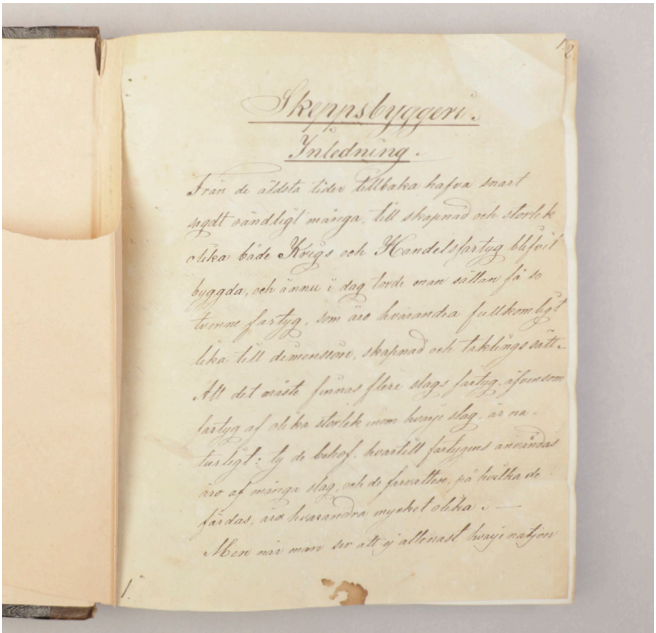 12
Skeppsbyggeri.
Inledning.
Från de äldsta tider tillbaka hafva snart
sagdt oändligt många, till skapnad och storlek
olika både Krigs och Handelsfartyg blifvit
byggda, och ännu i dag torde man sällan få se
tvenne fartyg, som äro hvarandra fullkomligt
lika till demension, skapnad och taklings sätt.
Att det måste finnas flere slags fartyg, äfvensom
fartyg af olika storlek inom hvarje slag, är na-
turligt: ty de behof, hvartill fartygens användas
äro af många slag, och de farvatten, på hvilka de
färdas, äro hvarandra mycket olika. —
Men när man ser att ej allenast hvarje nation
1.